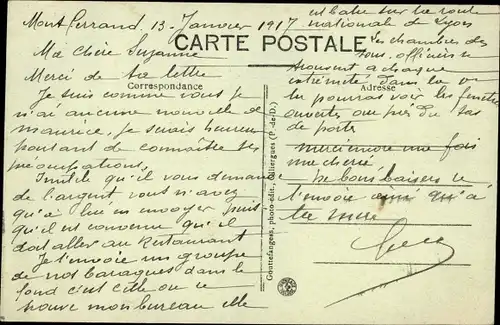 Mont Ferrand 13 Janvier 1917
Ma chère Suzanne
CARTE POSTALE
Merci de ta lettre
Correspondance
Je suis comme vous je
n'ai aucune nouvelle de
maurice, je serais heureux
pourtant de connaître ses
préoccupations.
Inutile qu'il vous demande
de l'argent vous n'avez
qu'à lui en envoyer puis
qu'il est convenu qu'il
doit aller au Restaurant
Je t'envoie un groupe
de nos baraques dans le
fond c'est celle ou se
trouve mon bureau elle
Gouttefangeas, photo-édit., Olliergues (P.-de-D.)
est batie sur la route
national de Lyon
Les chambres des
sous-officiers se
trouvent a chaque
extrémité dans la
Adresse
tu pourras voir les fenêtres
ouvertes au près du
de porte
merci encore une fois
ma chérie
de bons baisers
t'envoie qu'à
ta mère